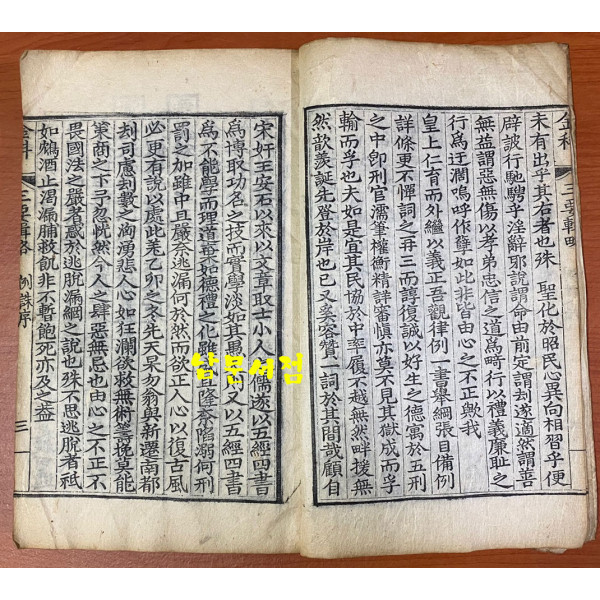 金科 三要輯略
未有出乎其右者也殊 聖化於昭民心異向相習乎便
辟詖行馳騁乎淫辭邪說謂命由前定謂刦遂適然謂善
無益謂惡無傷以孝弟忠信之道爲畸行以禮義廉恥之
行爲迂濶嗚呼作孽如此非皆由心之不正歟我
皇上仁育而外繼以義正吾觀律例一書舉綱張目備例
詳條更不憚詞之再三而諄復誠以好生之德寓於五刑
之中卽刑官濡筆權衡精詳審愼亦莫不見其獄成而孚
輸而孚也夫如是宜其民協於中率履不越無然畔援無
然歆羨誕先登於岸也已又奚容贊一詞於其間哉顧自
宋奸王安石以來以文章取士小人儒遂以五經四書
爲博取功名之技而實學淡如其爲 又以五經四書
爲不能學而理道 不如德禮之化雖 隆奈陷溺何刑
罰之加雖中且嚴奈逃漏何於然而欲正人心以復古風
必更有說以處此羌乙卯之冬先天杲勿翁與新遷南都
刦司慮刦數之洶湧悲人心如狂瀾欲救無術籌挽莫能
策商之下予忽恍然今人之肆惡無忌也由心之不正不
畏國法之嚴者惑於逃脫漏網之說也殊不思逃脫者祗
如鴆酒止渴漏脯救飢非不暫飽死亦及之蓋
金科 三要輯略 例誅序 三
남문서점